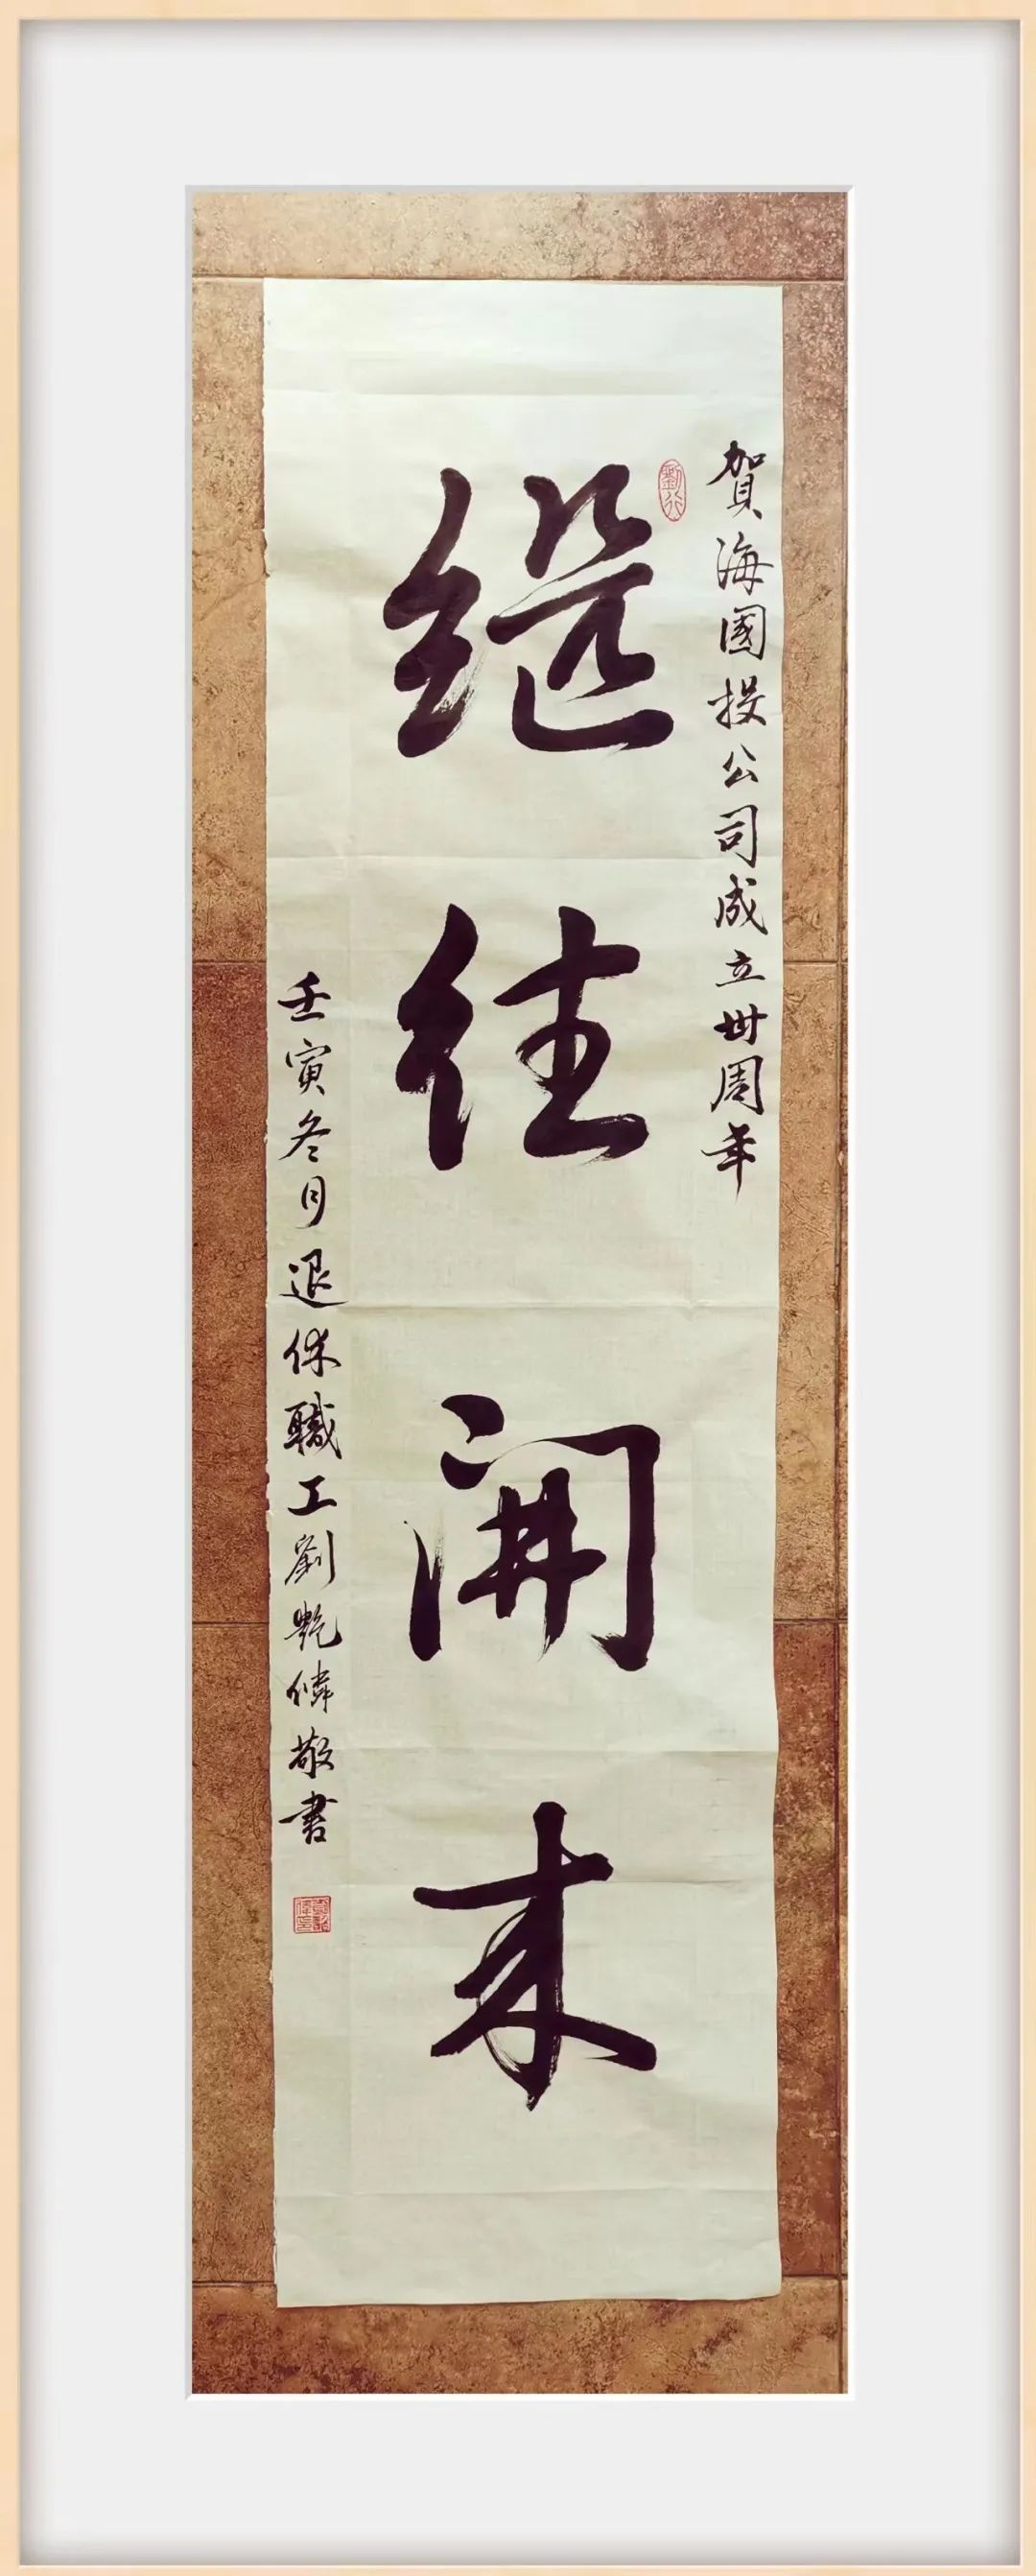 賀海國投公司成立卅周年
继往開来
壬寅冬月退休職工劉艷敬書